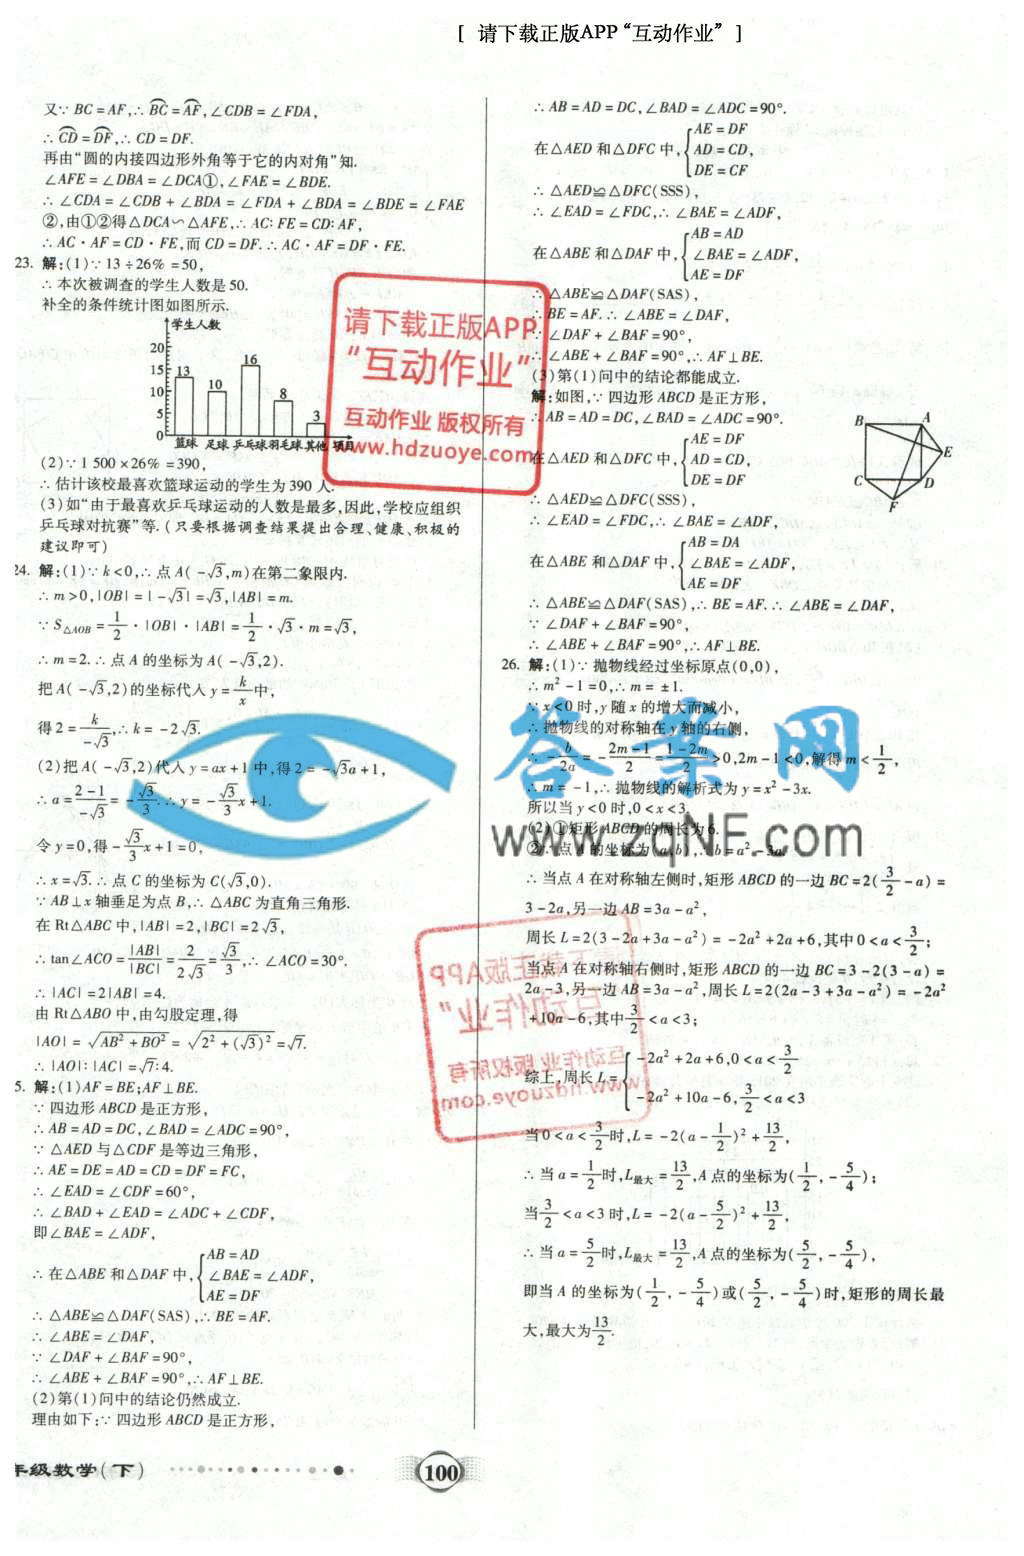 [ 请下载正版APP“互动作业” ]
又∵ BC = AF,∴ ⌒BC = ⌒AF,∠CDB = ∠FDA,
∴ ⌒CD = ⌒DF,∴ CD = DF.
再由“圆的内接四边形外角等于它的内对角”知.
∠AFE = ∠DBA = ∠DCA①,∠FAE = ∠BDE.
∴ ∠CDA = ∠CDB + ∠BDA = ∠FDA + ∠BDA = ∠BDE = ∠FAE
②,由①②得△DCA∽△AFE,∴ AC: FE = CD: AF,
∴ AC · AF = CD · FE,而 CD = DF. ∴ AC · AF = DF · FE.
23. 解:(1)∵ 13 ÷ 26% = 50,
∴ 本次被调查的学生人数是 50.
补全的条件统计图如图所示.
学生人数
20
15
10
5
0
13
10
16
8
3
篮球 足球 乒乓球 羽毛球 其他 项目
(2)∵ 1 500 × 26% = 390,
∴ 估计该校最喜欢篮球运动的学生为 390 人.
(3)如“由于最喜欢乒乓球运动的人数是最多,因此,学校应组织
乒乓球对抗赛”等.(只要根据调查结果提出合理、健康、积极的
建议即可)
24. 解:(1)∵ k < 0,∴ 点 A( -√3,m)在第二象限内.
∴ m > 0,|OB| = | -√3| = √3,|AB| = m.
∵ S△AOB = 1/2 · |OB| · |AB| = 1/2 · √3 · m = √3,
∴ m = 2. ∴ 点 A 的坐标为 A( -√3,2).
把 A( -√3,2)的坐标代入 y = k/x 中,
得 2 = k/-√3,∴ k = -2√3.
(2)把 A( -√3,2)代入 y = ax + 1 中,得 2 = -√3a + 1,
∴ a = 2 - 1/-√3 = -√3/3. ∴ y = -√3/3x + 1.
令 y = 0,得 -√3/3x + 1 = 0,
∴ x = √3. ∴ 点 C 的坐标为 C(√3,0).
∵ AB⊥x 轴垂足为点 B,∴ △ABC 为直角三角形.
在 Rt△ABC 中,|AB| = 2,|BC| = 2√3,
∴ tan∠ACO = |AB|/|BC| = 2/2√3 = √3/3,∴ ∠ACO = 30°.
∴ |AC| = 2|AB| = 4.
由 Rt△ABO 中,由勾股定理,得
|AO| = √AB² + BO² = √2² + (√3)² = √7.
∴ |AO|: |AC| = √7: 4.
5. 解:(1)AF = BE;AF⊥BE.
∵ 四边形 ABCD 是正方形,
∴ AB = AD = DC,∠BAD = ∠ADC = 90°,
∵ △AED 与△CDF 是等边三角形,
∴ AE = DE = AD = CD = DF = FC,
∴ ∠EAD = ∠CDF = 60°,
∴ ∠BAD + ∠EAD = ∠ADC + ∠CDF,
即∠BAE = ∠ADF,
∴ 在△ABE 和△DAF 中,{ AB = AD
∠BAE = ∠ADF,
AE = DF
∴ △ABE≌△DAF(SAS),∴ BE = AF.
∴ ∠ABE = ∠DAF,
∵ ∠DAF + ∠BAF = 90°,
∴ ∠ABE + ∠BAF = 90°,∴ AF⊥BE.
(2)第(1)问中的结论仍然成立.
理由如下:∵ 四边形 ABCD 是正方形,
年级数学(下)
100
∴ AB = AD = DC,∠BAD = ∠ADC = 90°.
在△AED 和△DFC 中,{ AE = DF
AD = CD,
DE = CF
∴ △AED≌△DFC(SSS),
∴ ∠EAD = ∠FDC,∴ ∠BAE = ∠ADF,
在△ABE 和△DAF 中,{ AB = AD
∠BAE = ∠ADF,
AE = DF
∴ △ABE≌△DAF(SAS),
∴ BE = AF. ∴ ∠ABE = ∠DAF,
∵ ∠DAF + ∠BAF = 90°,
∴ ∠ABE + ∠BAF = 90°,∴ AF⊥BE.
(3)第(1)问中的结论都能成立.
解:如图,∵ 四边形 ABCD 是正方形,
∴ AB = AD = DC,∠BAD = ∠ADC = 90°.
在△AED 和△DFC 中,{ AE = DF
AD = CD,
DE = DF
∴ △AED≌△DFC(SSS),
∴ ∠EAD = ∠FDC,∴ ∠BAE = ∠ADF,
在△ABE 和△DAF 中,{ AB = DA
∠BAE = ∠ADF,
AE = DF
∴ △ABE≌△DAF(SAS),∴ BE = AF. ∴ ∠ABE = ∠DAF,
∵ ∠DAF + ∠BAF = 90°,
∴ ∠ABE + ∠BAF = 90°,∴ AF⊥BE.
B
A
E
C
D
F
26. 解:(1)∵ 抛物线经过坐标原点(0,0),
∴ m² - 1 = 0,∴ m = ±1.
∵ x < 0 时,y 随 x 的增大而减小,
∴ 抛物线的对称轴在 y 轴的右侧,
∴ -b/2a = -2m - 1/2 = 1 - 2m/2 > 0,2m - 1 < 0,解得 m < 1/2,
∴ m = -1,∴ 抛物线的解析式为 y = x² - 3x.
所以当 y < 0 时,0 < x < 3.
(2)①矩形 ABCD 的周长为 6.
②∵ 点 A 的坐标为(a,b),∴ b = a² - 3a.
∴ 当点 A 在对称轴左侧时,矩形 ABCD 的一边 BC = 2(3/2 - a) =
3 - 2a,另一边 AB = 3a - a²,
周长 L = 2(3 - 2a + 3a - a²) = -2a² + 2a + 6,其中 0 < a < 3/2;
当点 A 在对称轴右侧时,矩形 ABCD 的一边 BC = 3 - 2(3 - a) =
2a - 3,另一边 AB = 3a - a²,周长 L = 2(2a - 3 + 3a - a²) = -2a²
+ 10a - 6,其中 3/2 < a < 3;
综上,周长 L = { -2a² + 2a + 6,0 < a < 3/2
-2a² + 10a - 6,3/2 < a < 3
当 0 < a < 3/2 时,L = -2(a - 1/2)² + 13/2,
∴ 当 a = 1/2 时,L最大 = 13/2,A 点的坐标为(1/2, -5/4);
当 3/2 < a < 3 时,L = -2(a - 5/2)² + 13/2,
∴ 当 a = 5/2 时,L最大 = 13/2,A 点的坐标为(5/2, -5/4),
即当 A 的坐标为(1/2, -5/4)或(5/2, -5/4)时,矩形的周长最
大,最大为 13/2.
请下载正版APP
“互动作业”
互动作业 版权所有
www.hdzuoye.com
答案网
www.zqNF.com
请下载正版APP
“互动作业”
互动作业 版权所有
www.hdzuoye.com